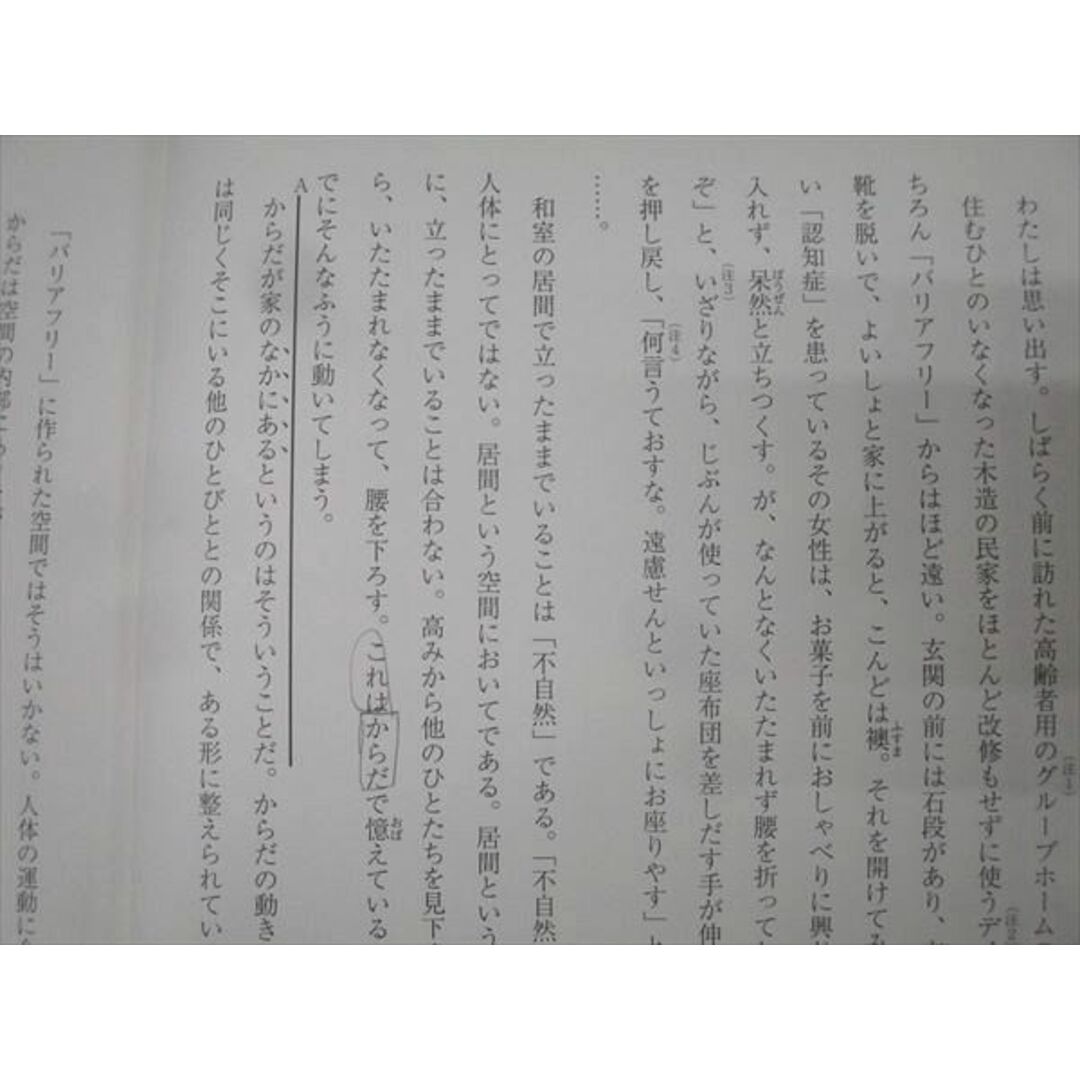 わたしは思い出す。しばらく前に訪れた高齢者用の(注1)グループホーム
住むひとのいなくなった木造の民家をほとんど改修もせずに使う(注2)デ
ちろん「バリアフリー」からはほど遠い。玄関の前には石段があり、
靴を脱いで、よいしょと家に上がると、こんどは襖(ふすま)。それを開けて
い「認知症」を患っているその女性は、お菓子を前におしゃべりに興
入れず、呆然(ぼうぜん)と立ちつくす。が、なんとなくいたたまれず腰を折って
ぞ」と、(注3)いざりながら、じぶんが使っていた座布団を差しだす手が伸
を押し戻し、「(注4)何言うておすな。遠慮せんといっしょにお座りやす」
……。
和室の居間で立ったままでいることは「不自然」である。「不自然
人体にとってではない。居間という空間においてである。居間という
に、立ったままでいることは合わない。高みから他のひとたちを見下
ら、いたたまれなくなって、腰を下ろす。これはからだで憶(おぼ)えている
でにそんなふうに動いてしまう。
A からだが家のなかにあるというのはそういうことだ。からだの動き
は同じくそこにいる他のひとびととの関係で、ある形に整えられてい
「バリアフリー」に作られた空間ではそうはいかない。人体の運動に
からだは空間の内部に